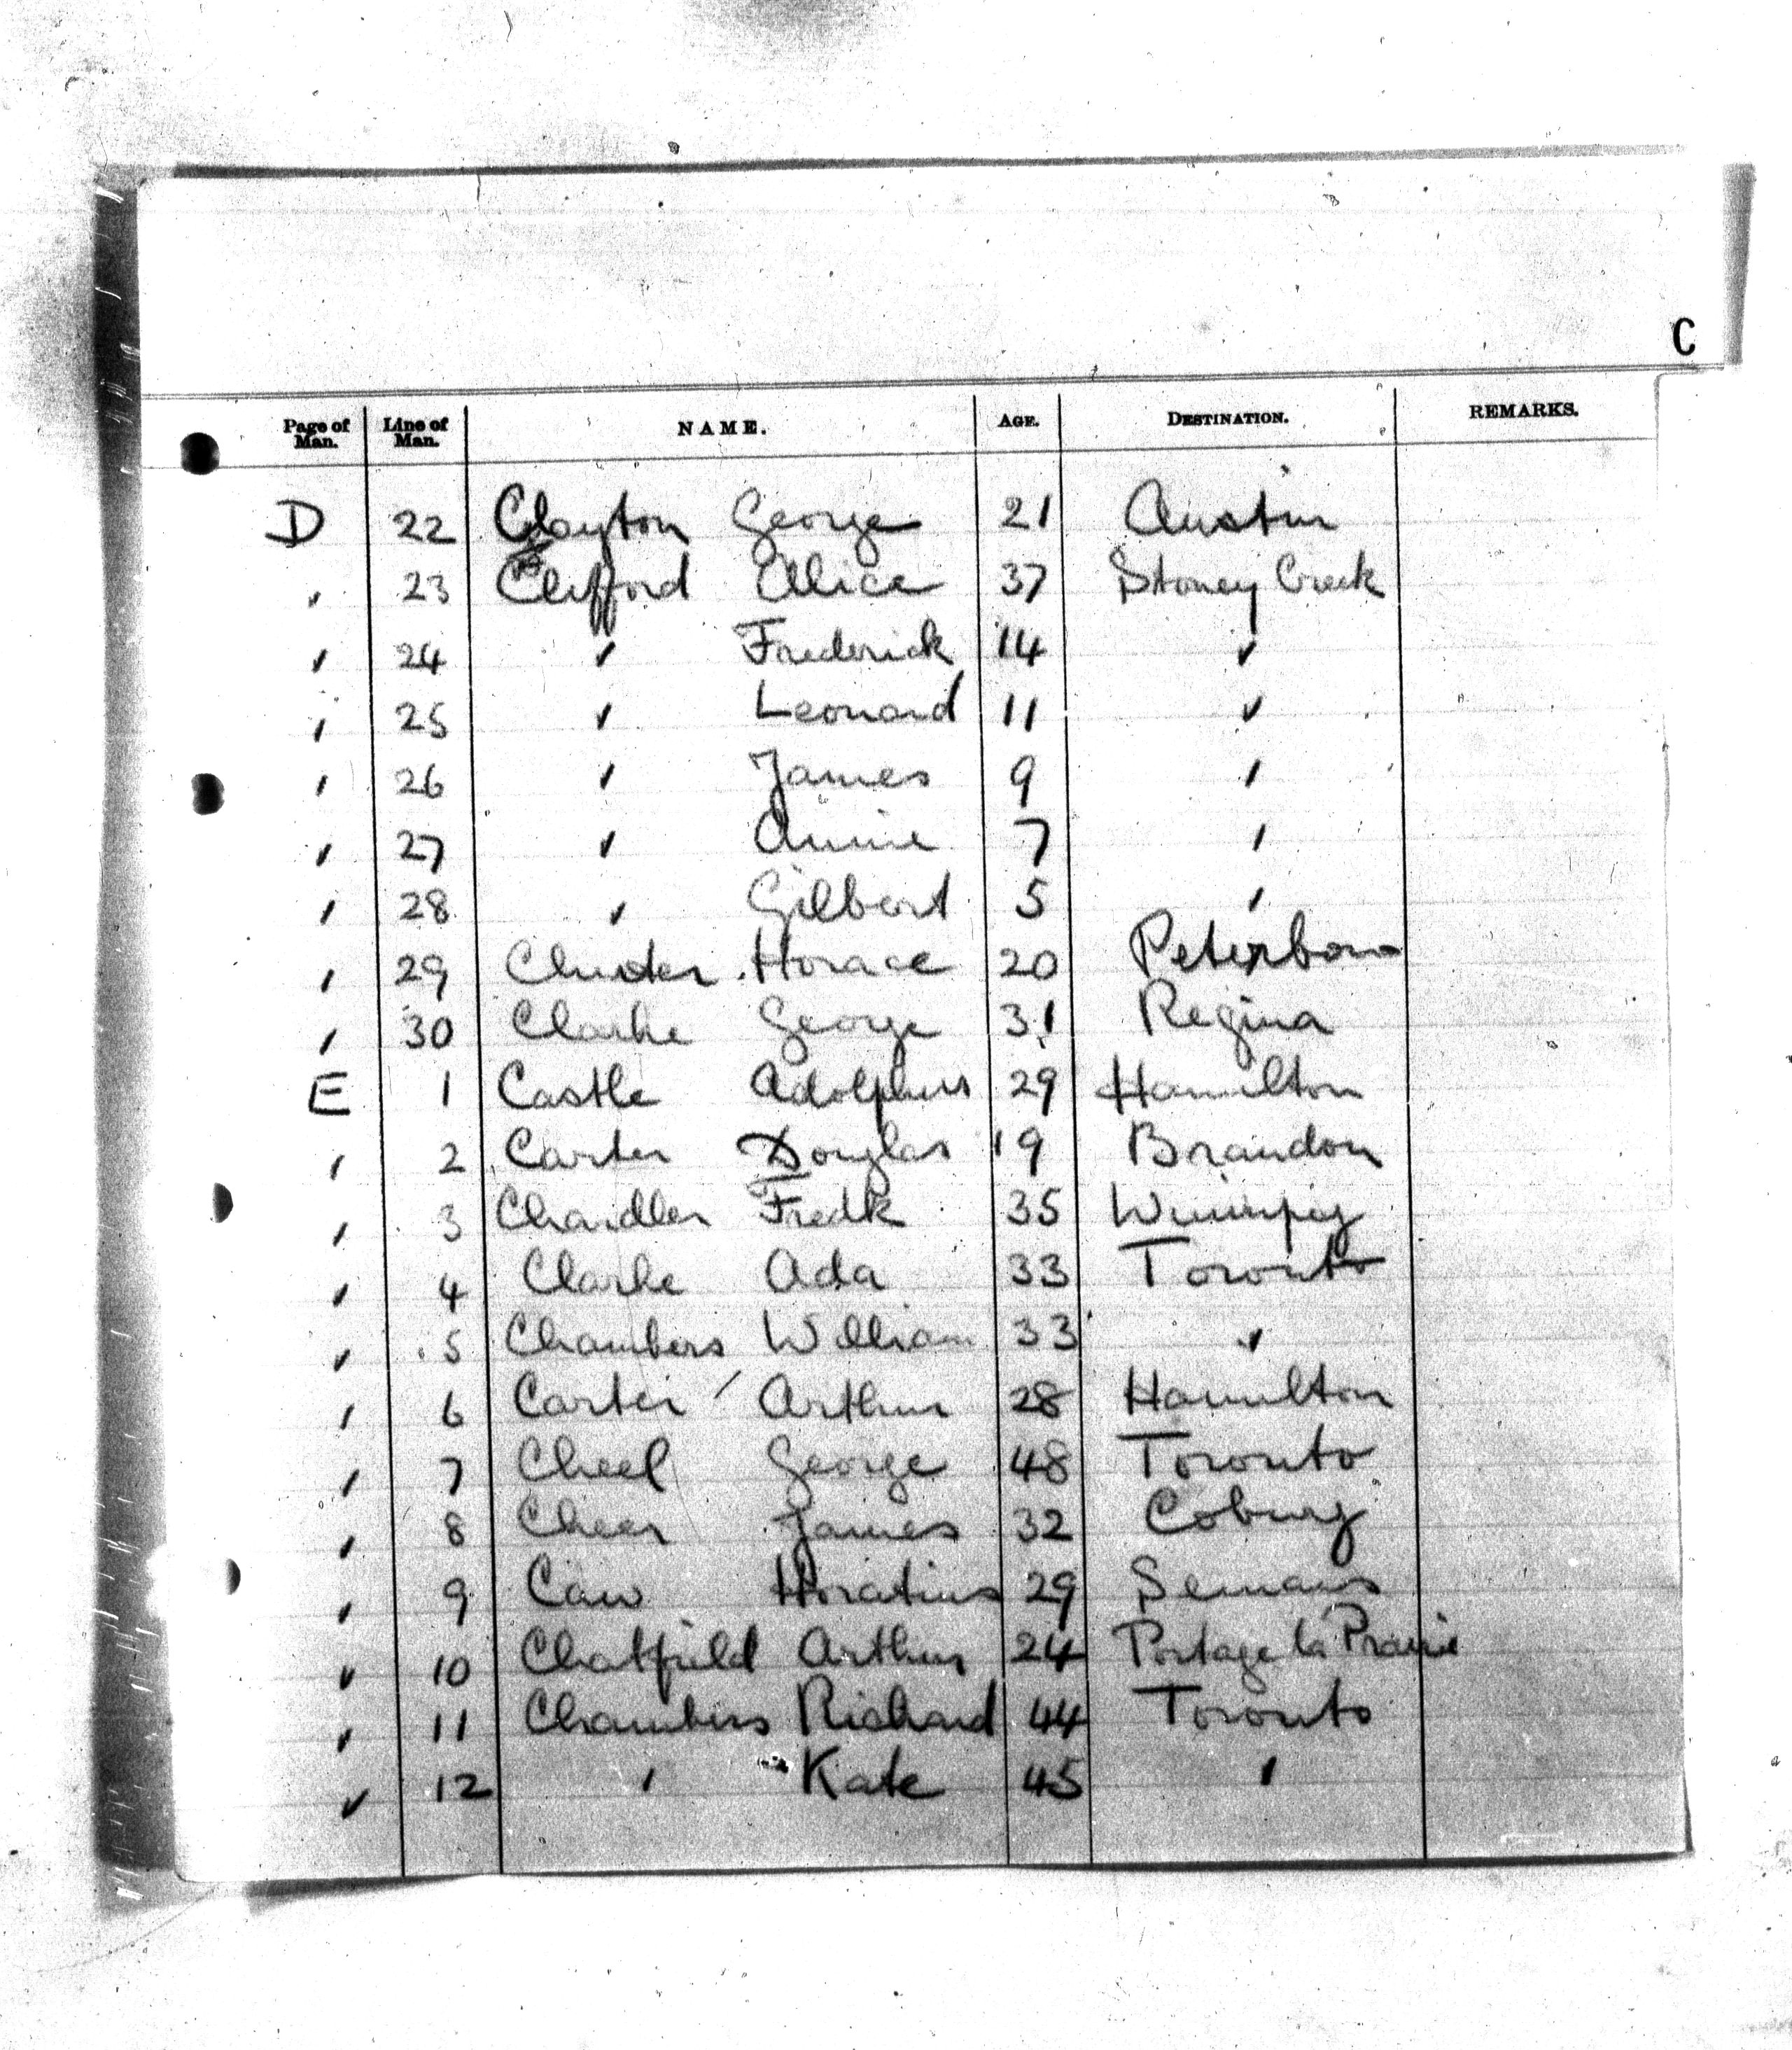 C
Page of Man. Line of Man. NAME. AGE. DESTINATION. REMARKS.
D 22 Clayton George 21 Austin
" 23 Clifford Alice 37 Stoney Creek
" 24 " Frederick 14 "
" 25 " Leonard 11 "
" 26 " James 9 "
" 27 " Annie 7 "
" 28 " Gilbert 5 "
" 29 Horace 20 Peterboro
" 30 Clarke George 31 Regina
E 1 Castle Adolphus 29 Hamilton
" 2 Carter Douglas 19 Brandon
" 3 Chandler Fredk 35 Winnipeg
" 4 Clarke Ada 33 Toronto
" 5 Chambers William 33 "
" 6 Carter Arthur 28 Hamilton
" 7 Cheel George 48 Toronto
" 8 Cheer James 32 Coburg
" 9 Caw Horatius 29 Semans
" 10 Chatfield Arthur 24 Portage la Prairie
" 11 Chambers Richard 44 Toronto
" 12 " Kate 45 "